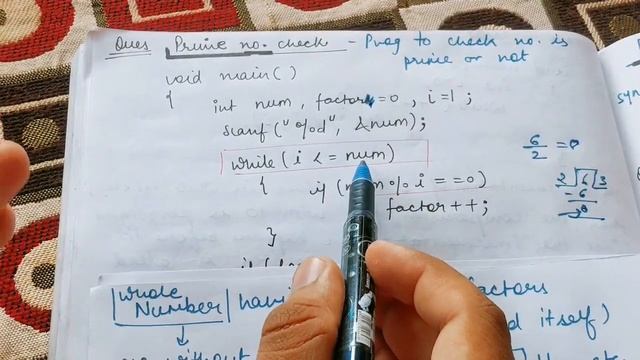 Ques Prime no. check - Prog to check no. is
prime or not
void main()
{ int num, factor=0, i=1;
scanf("%d", &num);
while(i <= num)
{ if (num % i ==0)
factor++;
}
6/2 = 0
2 6 3
-6
0
whole
Number
factors
itself)